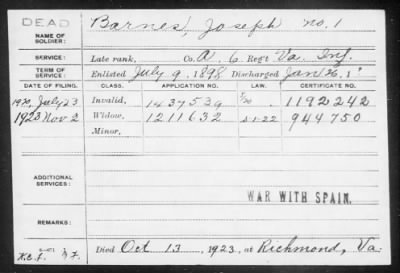 DEAD
NAME OF SOLDIER: Barnes, Joseph no. 1
SERVICE: Late rank, Co. A. 6 Reg't Va. Inf.
TERM OF SERVICE: Enlisted July 9, 1898 Discharged Jan 26,
DATE OF FILING. CLASS. APPLICATION NO. LAW. CERTIFICATE NO.
July 23 Invalid, 1437539 1192242
1923 Nov 2 Widow, 1211632 S1-22 944750
Minor,
ADDITIONAL SERVICES:
WAR WITH SPAIN.
REMARKS:
Died Oct 13, 1923, at Richmond, Va.